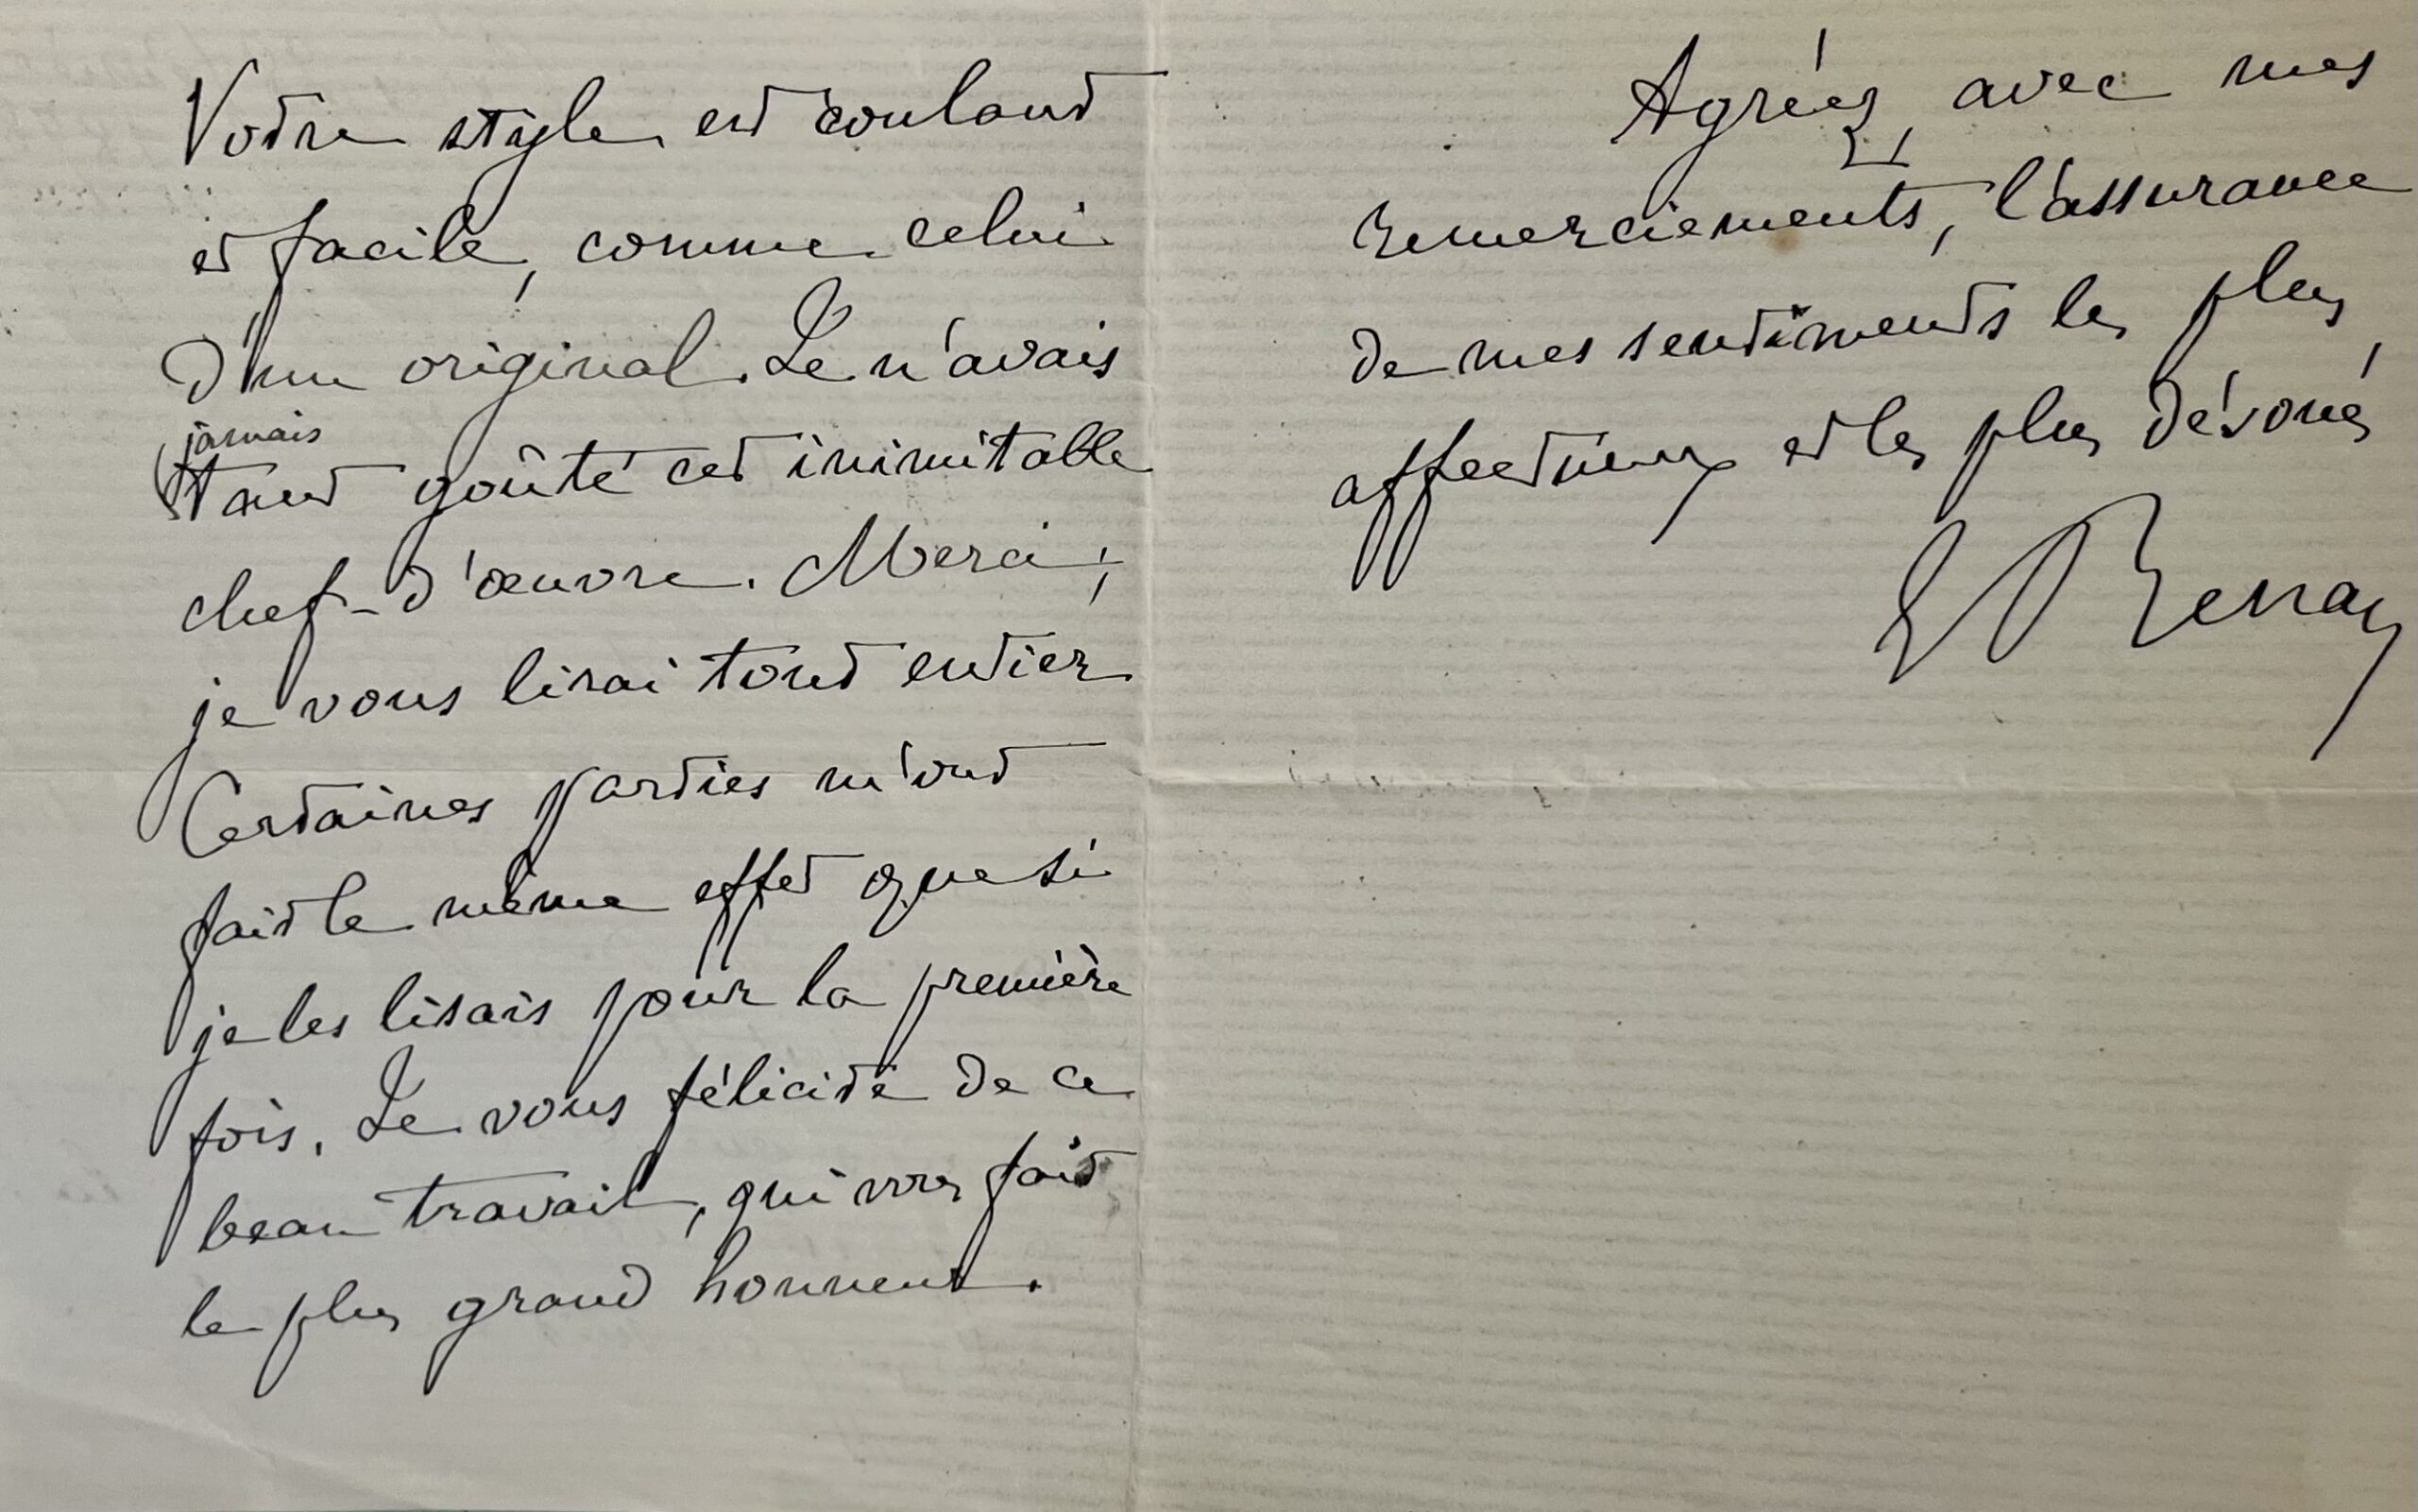 Votre style est coulant
et facile, comme celui
d'un original. Je n'avais
jamais
tant goûté cet inimitable
chef-d'œuvre. Merci ;
je vous lirai tout entier.
Certaines parties m'ont
fait le même effet que si
je les lisais pour la première
fois. Je vous félicite de ce
beau travail, qui vous fait
le plus grand honneur.
Agréez, avec mes
remerciements, l'assurance
de mes sentiments les plus
affectueux et les plus dévoués
E Renan